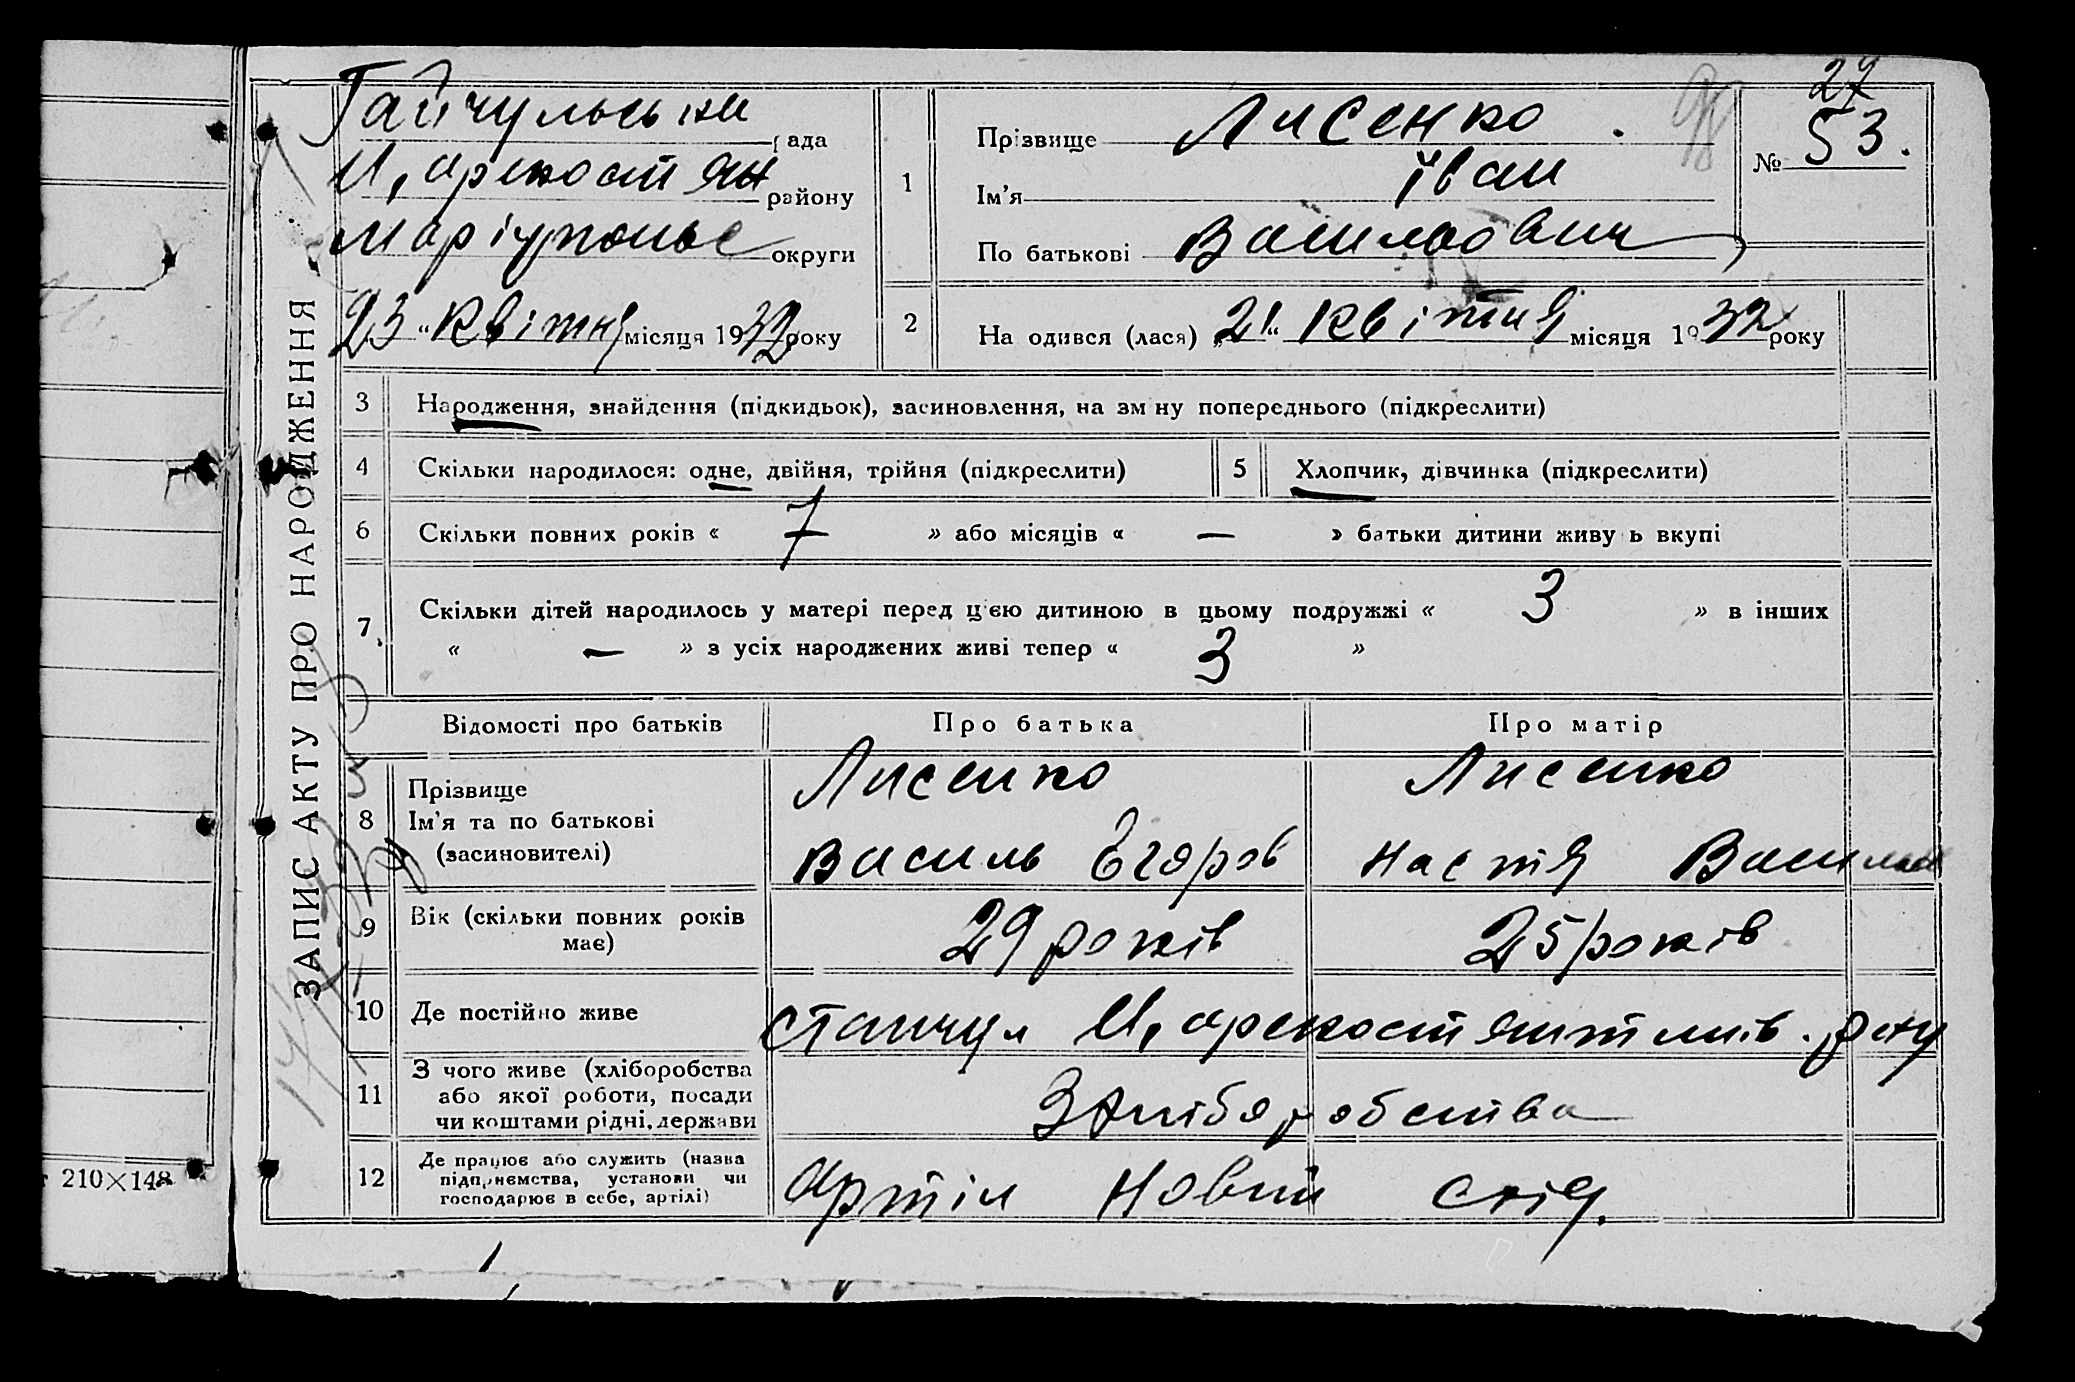 Гайчульська рада
Царекостян району
Маріупольс округи
23 " Квітня місяця 1932 року
1
Прізвище Лисенко
Ім'я Іван
По батькові Васильович
27
№ 53.
2
На одився (лася) „21" Квітня місяця 1932 року
ЗАПИС АКТУ ПРО НАРОДЖЕННЯ
3 Народження, знайдення (підкидьок), засиновлення, на зм ну попереднього (підкреслити)
4 Скільки народилося: одне, двійня, трійня (підкреслити)
5 Хлопчик, дівчинка (підкреслити)
6 Скільки повних років « 7 » або місяців « — » батьки дитини живу ь вкупі
7 Скільки дітей народилось у матері перед ц'єю дитиною в цьому подружжі « 3 » в інших
« — » з усіх народжених живі тепер « 3 »
Відомості про батьків Про батька Про матір
8 Прізвище
Ім'я та по батькові
(засиновителі)
Лисенко
Василь Егоров
Лисенко
Настя Васил
9 Вік (скільки повних років
має)
29 років
25 років
10 Де постійно живе
11 З чого живе (хліборобства
або якої роботи, посади
чи коштами рідні, держави
З хліборобства
12 Де працює або служить (назва
підприємства, установи чи
господарює в себе, артілі)
Артіл Новий
210×148